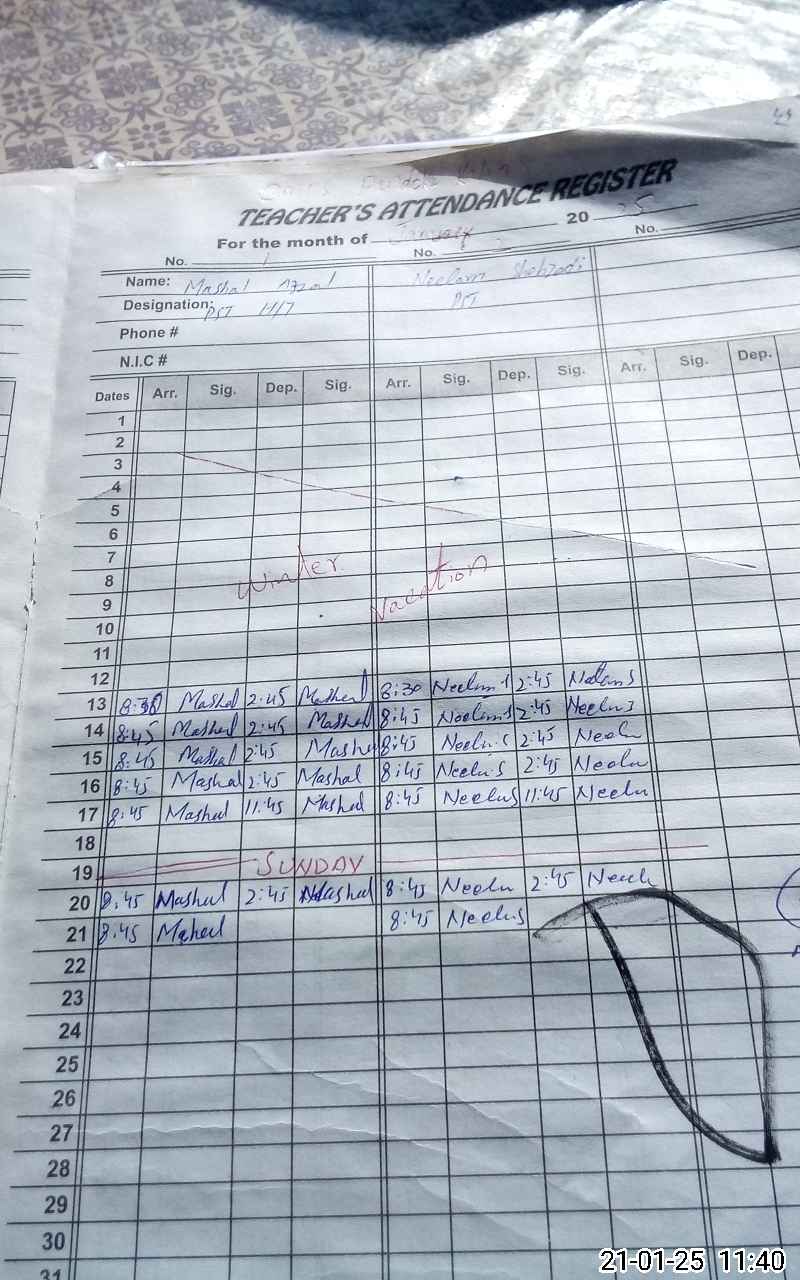 TEACHER'S ATTENDANCE REGISTER
For the month of January 2025
No. 1 No. 2 No.
Name: Mashal Neelam Shehzadi
Designation: PST PST
Phone #
N.I.C #
Dates Arr. Sig. Dep. Sig. Arr. Sig. Dep. Sig. Arr. Sig. Dep.
1
2
3
4
5
6
7
8 Winter Vacation
9
10
11
12
13 8:30 Mashal 2:45 Mashal 8:30 Neelum S 2:45 Neelam S
14 8:45 Mashal 2:45 Mashal 8:45 Neelum S 2:45 Neelu S
15 8:45 Mashal 2:45 Mashal 8:45 Neelu S 2:45 Neelu
16 8:45 Mashal 2:45 Mashal 8:45 Neelu S 2:45 Neelu
17 8:45 Mashal 11:45 Mashal 8:45 Neelu S 11:45 Neelu
18
19 SUNDAY
20 8:45 Mashal 2:45 Mashal 8:45 Neelu 2:45 Neelu
21 8:45 Mashal 8:45 Neelu S
22
23
24
25
26
27
28
29
30
31
21-01-25 11:40